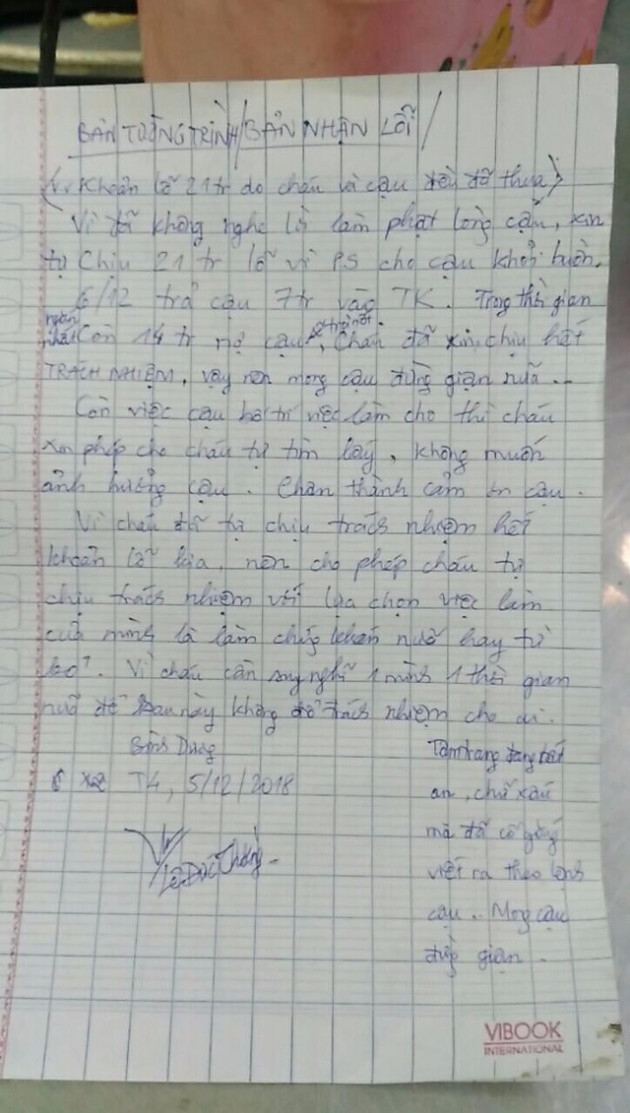 BẢN TƯỜNG TRÌNH/BẢN NHẬN LỖI/
(V.v Khoản lỗ 21tr do cháu và cậu đều đã thua)
Vì đã không nghe lời làm phật lòng cậu, xin
tự chịu 21 tr lỗ vì PS cho cậu khỏi buồn.
6/12 trả cậu 7tr vào TK. Trong thời gian
ngắn nhất Còn 14 tr nợ cậu sẽ trả nốt. Cháu đã xin chịu hết
TRÁCH NHIỆM, vậy nên mong cậu đừng giận nữa...
Còn việc cậu bố trí việc làm cho thì cháu
xin phép cho cháu tự tìm lấy, không muốn
ảnh hưởng cậu. Chân thành cảm ơn cậu.
Vì cháu đã tự chịu trách nhiệm hết
khoản lỗ kia, nên cho phép cháu tự
chịu trách nhiệm với lựa chọn việc làm
của mình là làm chứng khoán nữa hay từ
bỏ. Vì cháu cần suy nghĩ 1 mình 1 thời gian
nữa để sau này không đổ trách nhiệm cho ai.
Bình Dương
T4, 5/12/2018
Lê Đức Thắng
Tâm trạng đang bất
an, chữ xấu
mà đã cố gắng
viết ra theo lệnh
cậu.. Mong cậu
đừng giận.
VIBOOK
INTERNATIONAL